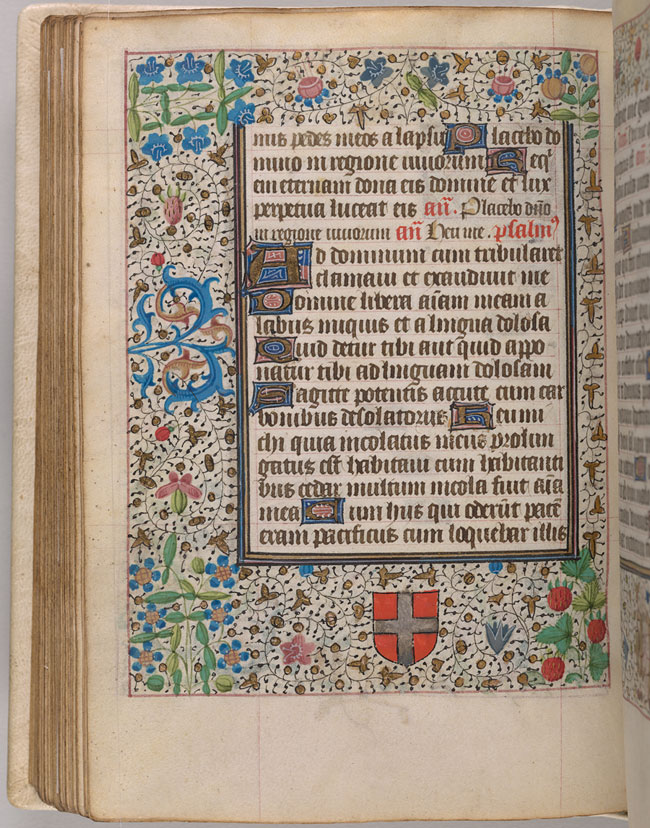 mis pedes meos a lapsu Placebo do
mino in regione uiuorum Req̄
em eternam dona eis domine et lux
perpetua luceat eis an̄. Placebo dn̄o
in regione uiuorum an̄ Heu me. psalmꝰ
Ad dominum cum tribularer
clamaui et exaudiuit me
Domine libera aīam meam a
labiis iniquis et a lingua dolosa
Quid detur tibi aut quid appo
natur tibi ad linguam dolosam
Sagitte potentis accute cum car
bonibus desolatoriis Heu mi
chi quia incolatus meus prolon
gatus est habitaui cum habitanti
bus cedar multum incola fuit aīa
mea Cum hiis qui oderūt pacē
eram pacificus cum loquebar illis